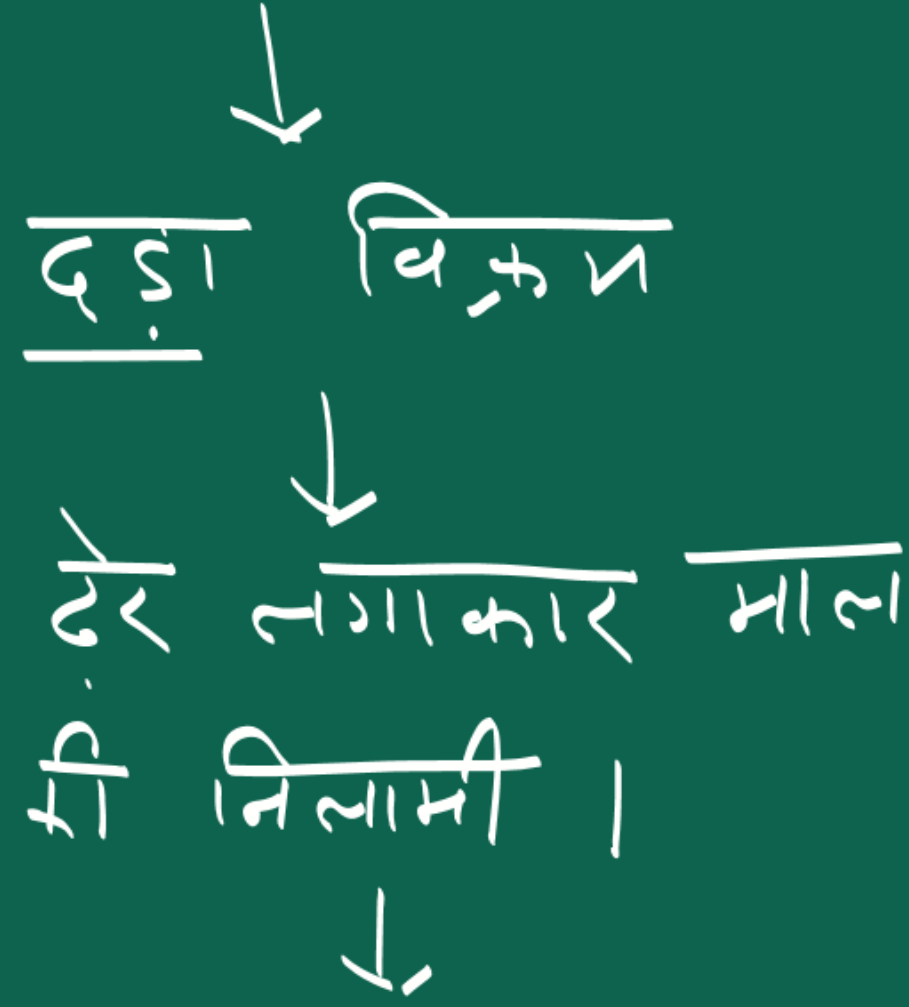 दड़ा विक्रय
ढेर लगाकार माल
की निलामी ।